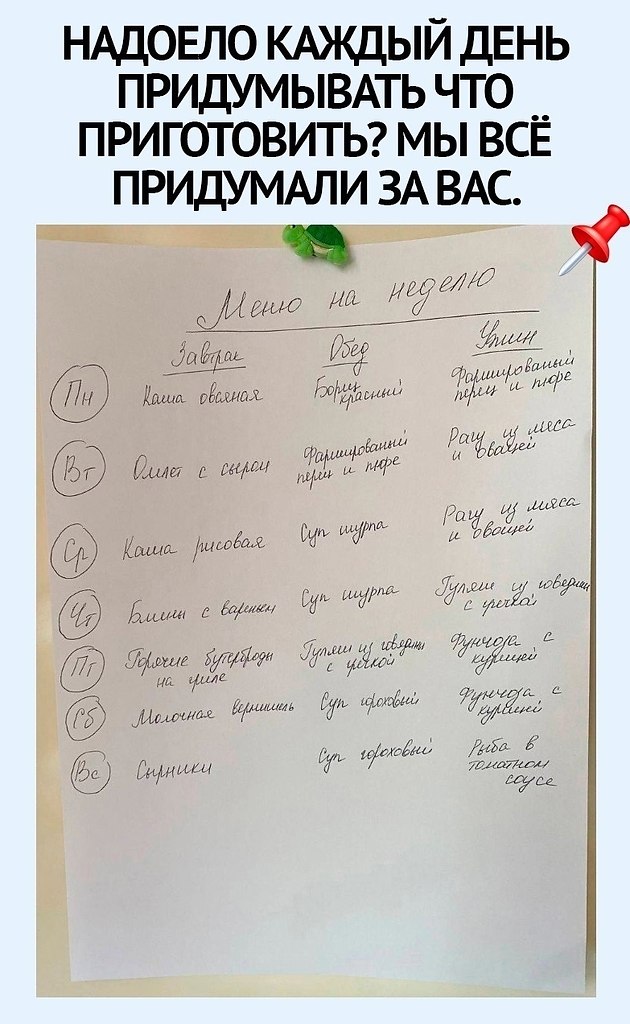 НАДОЕЛО КАЖДЫЙ ДЕНЬ
ПРИДУМЫВАТЬ ЧТО
ПРИГОТОВИТЬ? МЫ ВСЁ
ПРИДУМАЛИ ЗА ВАС.
Меню на неделю
Завтрак Обед Ужин
Пн Каша овсяная Борщ красный Фаршированый перец и пюре
Вт Омлет с сыром Фаршированый перец и пюре Рагу из мяса и овощей
Ср Каша рисовая Суп шурпа Рагу из мяса и овощей
Чт Блины с вареньем Суп шурпа Гуляш из говядины с гречкой
Пт Горячие бутерброды на гриле Гуляш из говядины с гречкой Фунчоза с курицей
Сб Молочная вермишель Суп гороховый Фунчоза с курицей
Вс Сырники Суп гороховый Рыба в томатном соусе